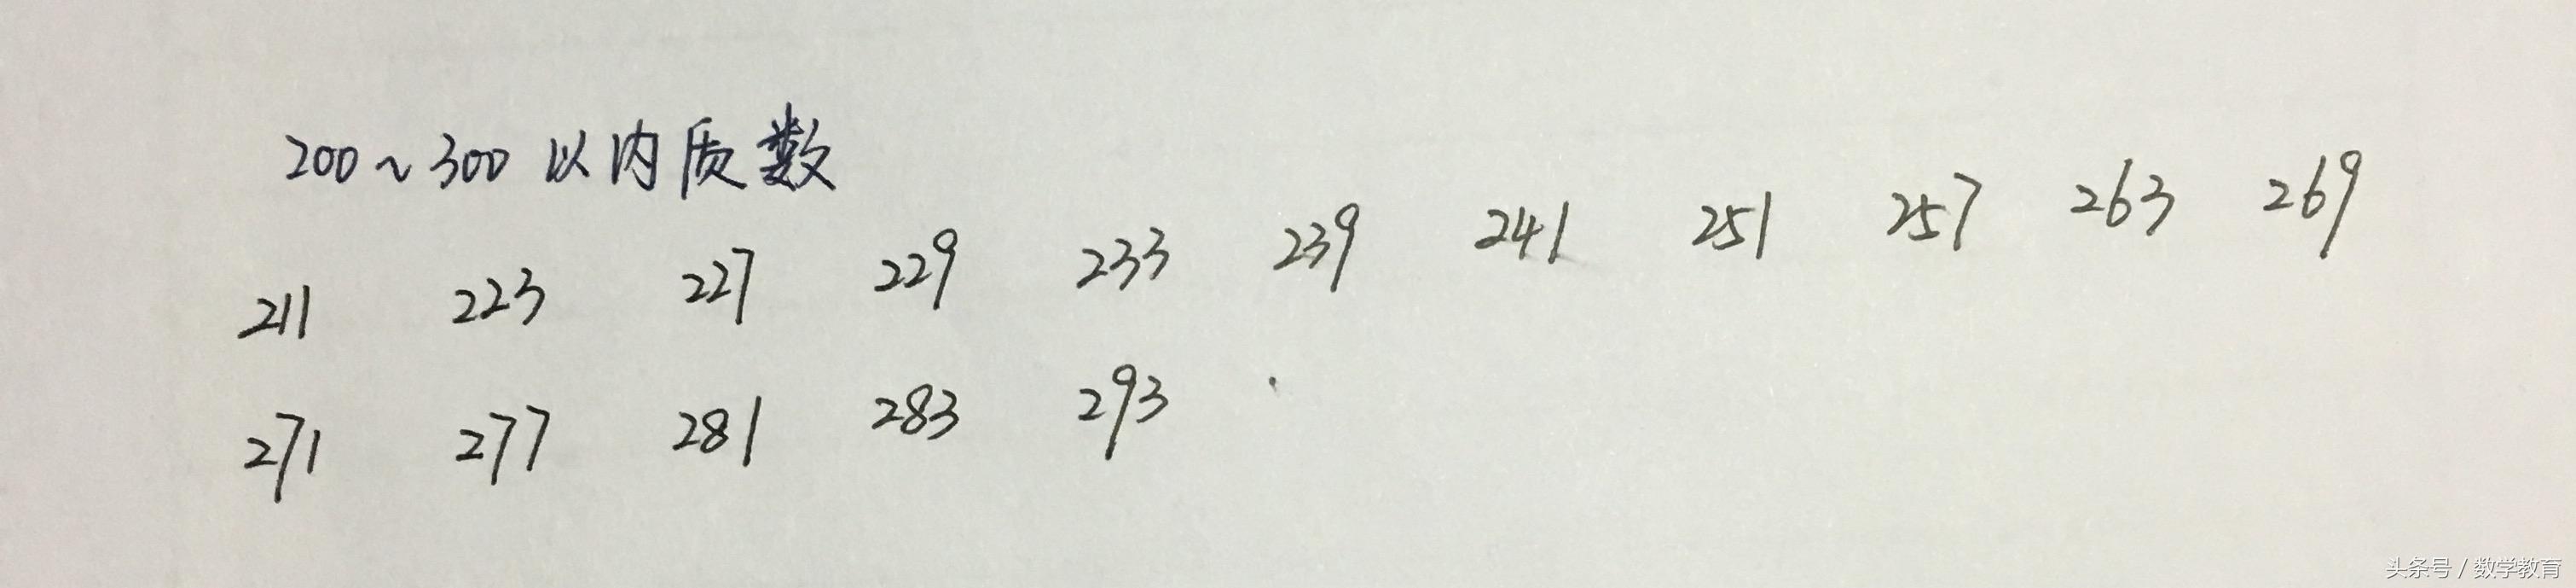 200~300 以内质数
211 223 227 229 233 239 241 251 257 263 269
271 277 281 283 293
头条号 / 数学教育